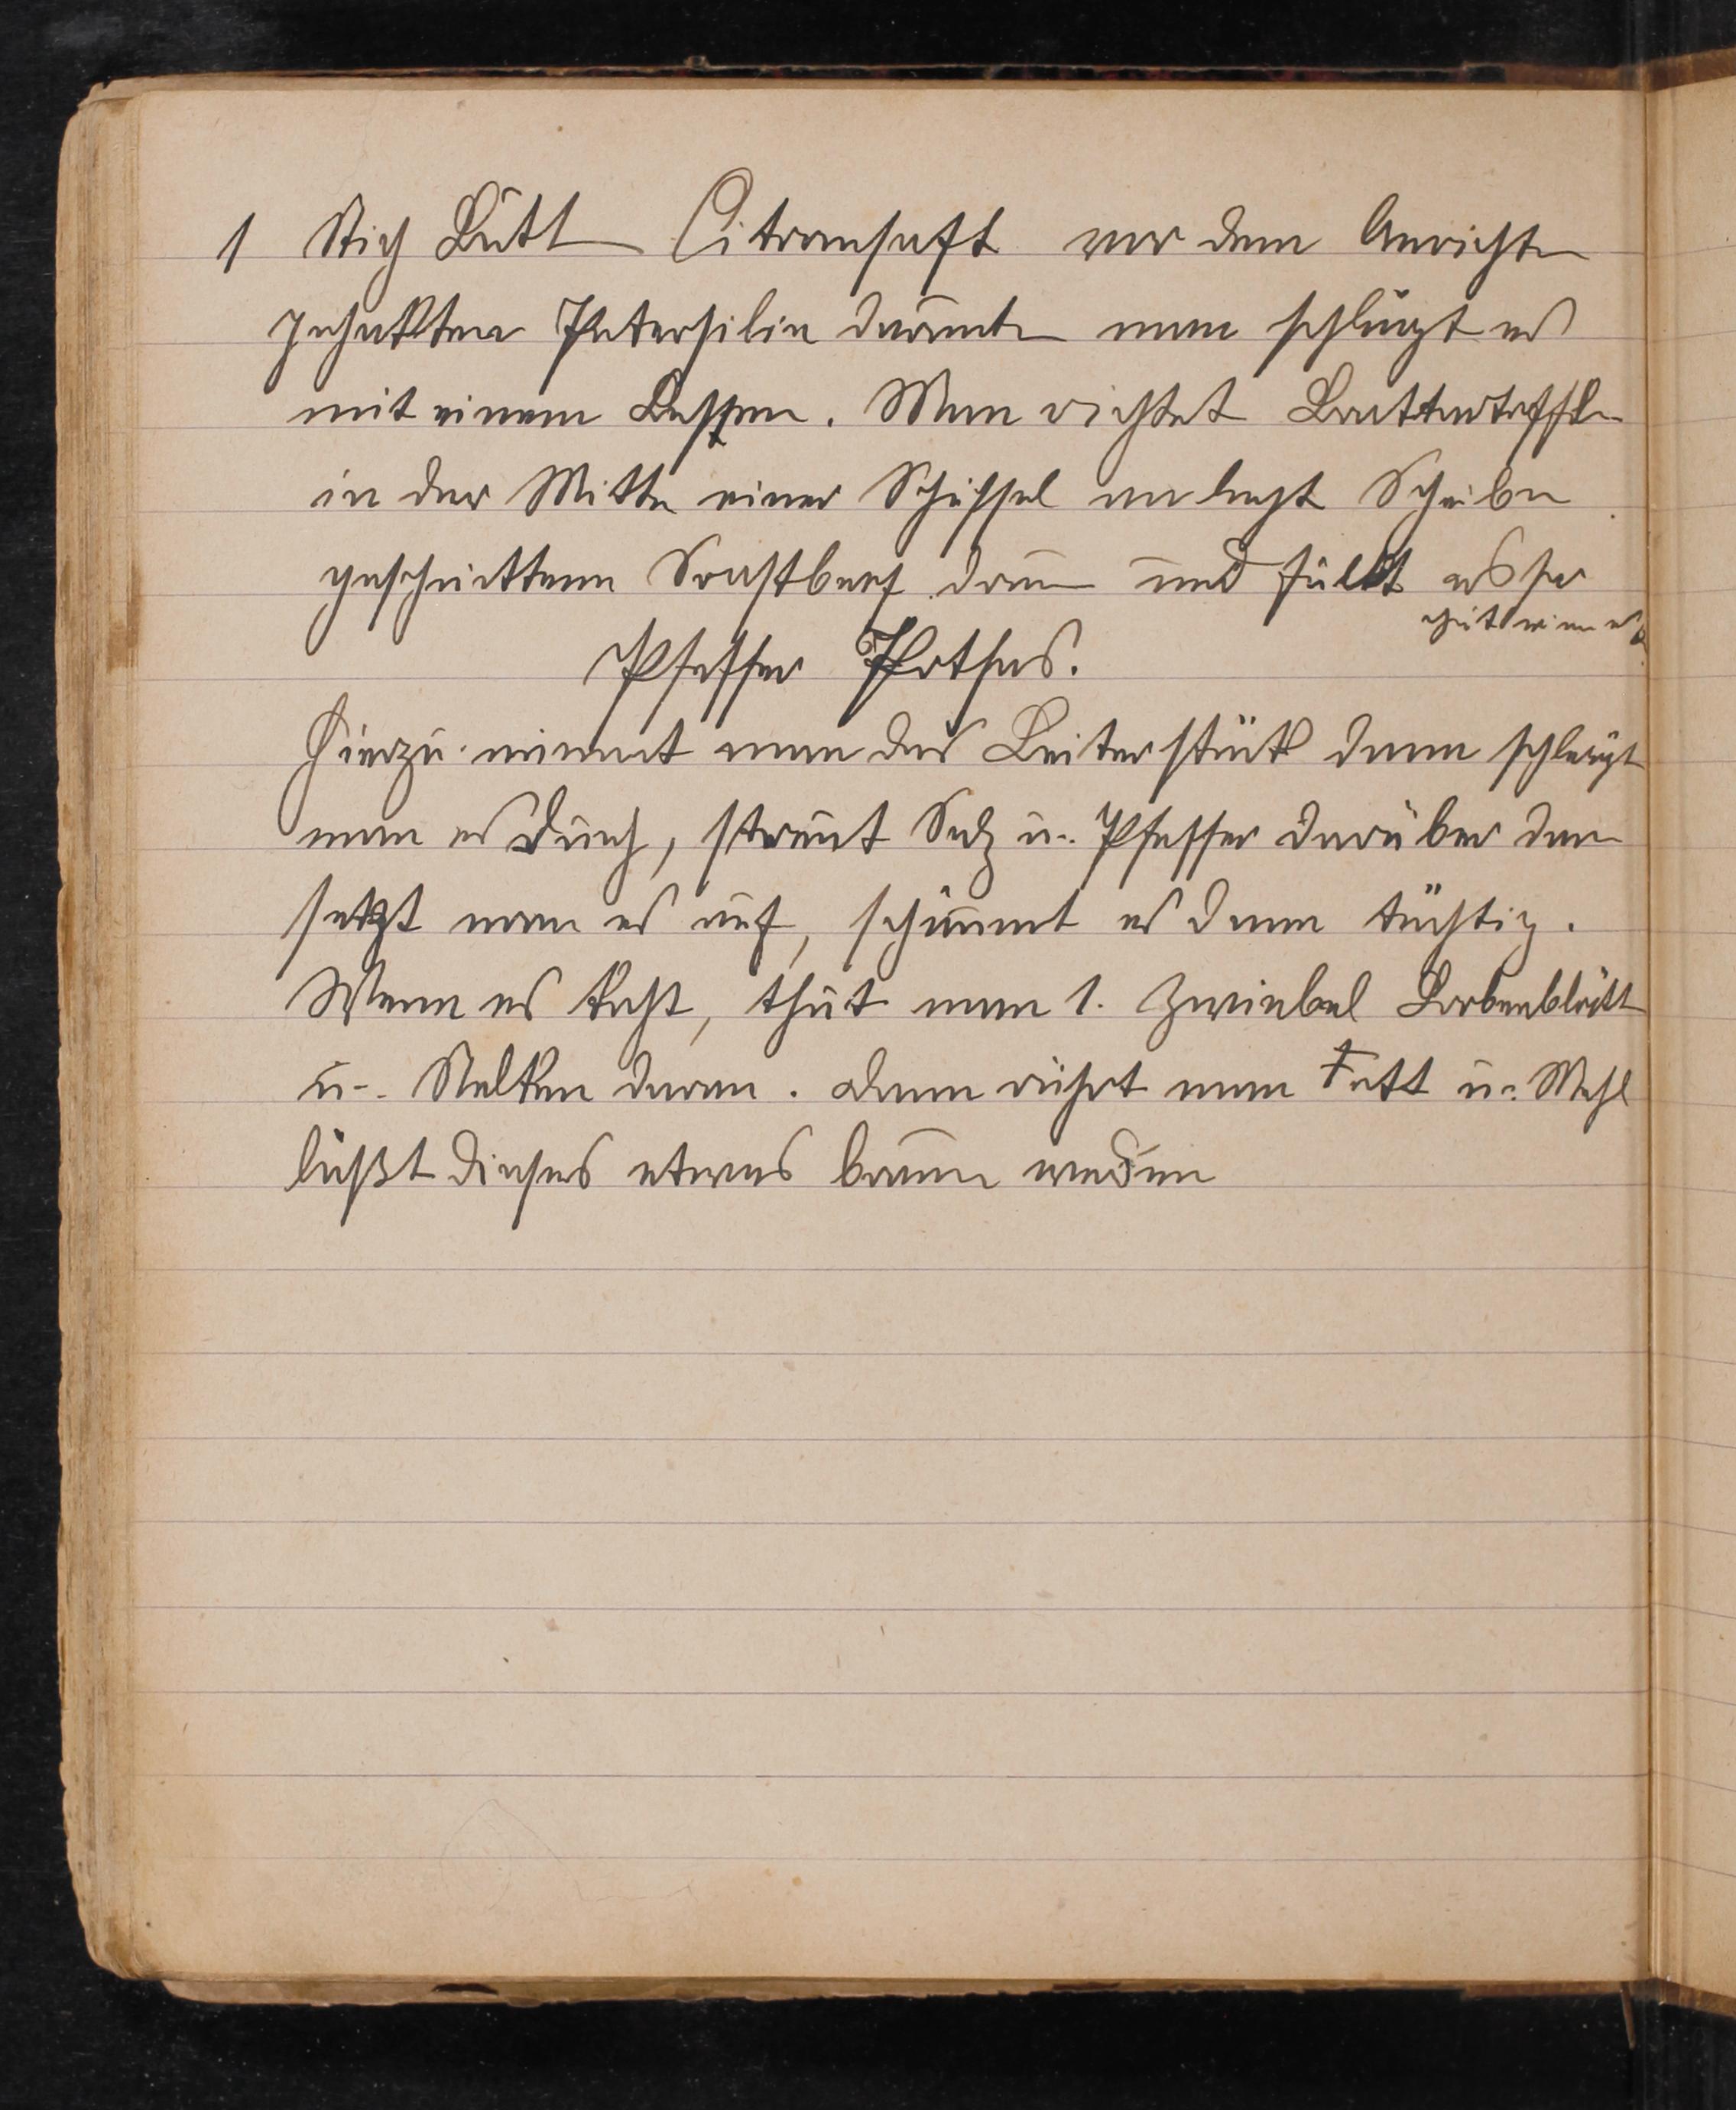 1 Stich Butt Citronensaft vor dem Anrichten
gehakten Petersilie darunter man schlägt es
mit einem Bessen. Man richtet Brattartoffel
in der Mitte einer Schüssel an legt Scheiben
geschnittenen Roastbeef drum und füllt
Pfeffer Pothas.
Hierzu nimmt man das Leiterstück dann schlägt
man es durch, streut Salz u. Pfeffer darüber dan
setzt man es auf, schäumt es dann tüchtig.
Wenn es kocht, thut man 1. Zwiebel Lorbeerblätt
u. Nelken daran. dann rührt man Fett u. Mehl
läßt dieses etwas braun werden